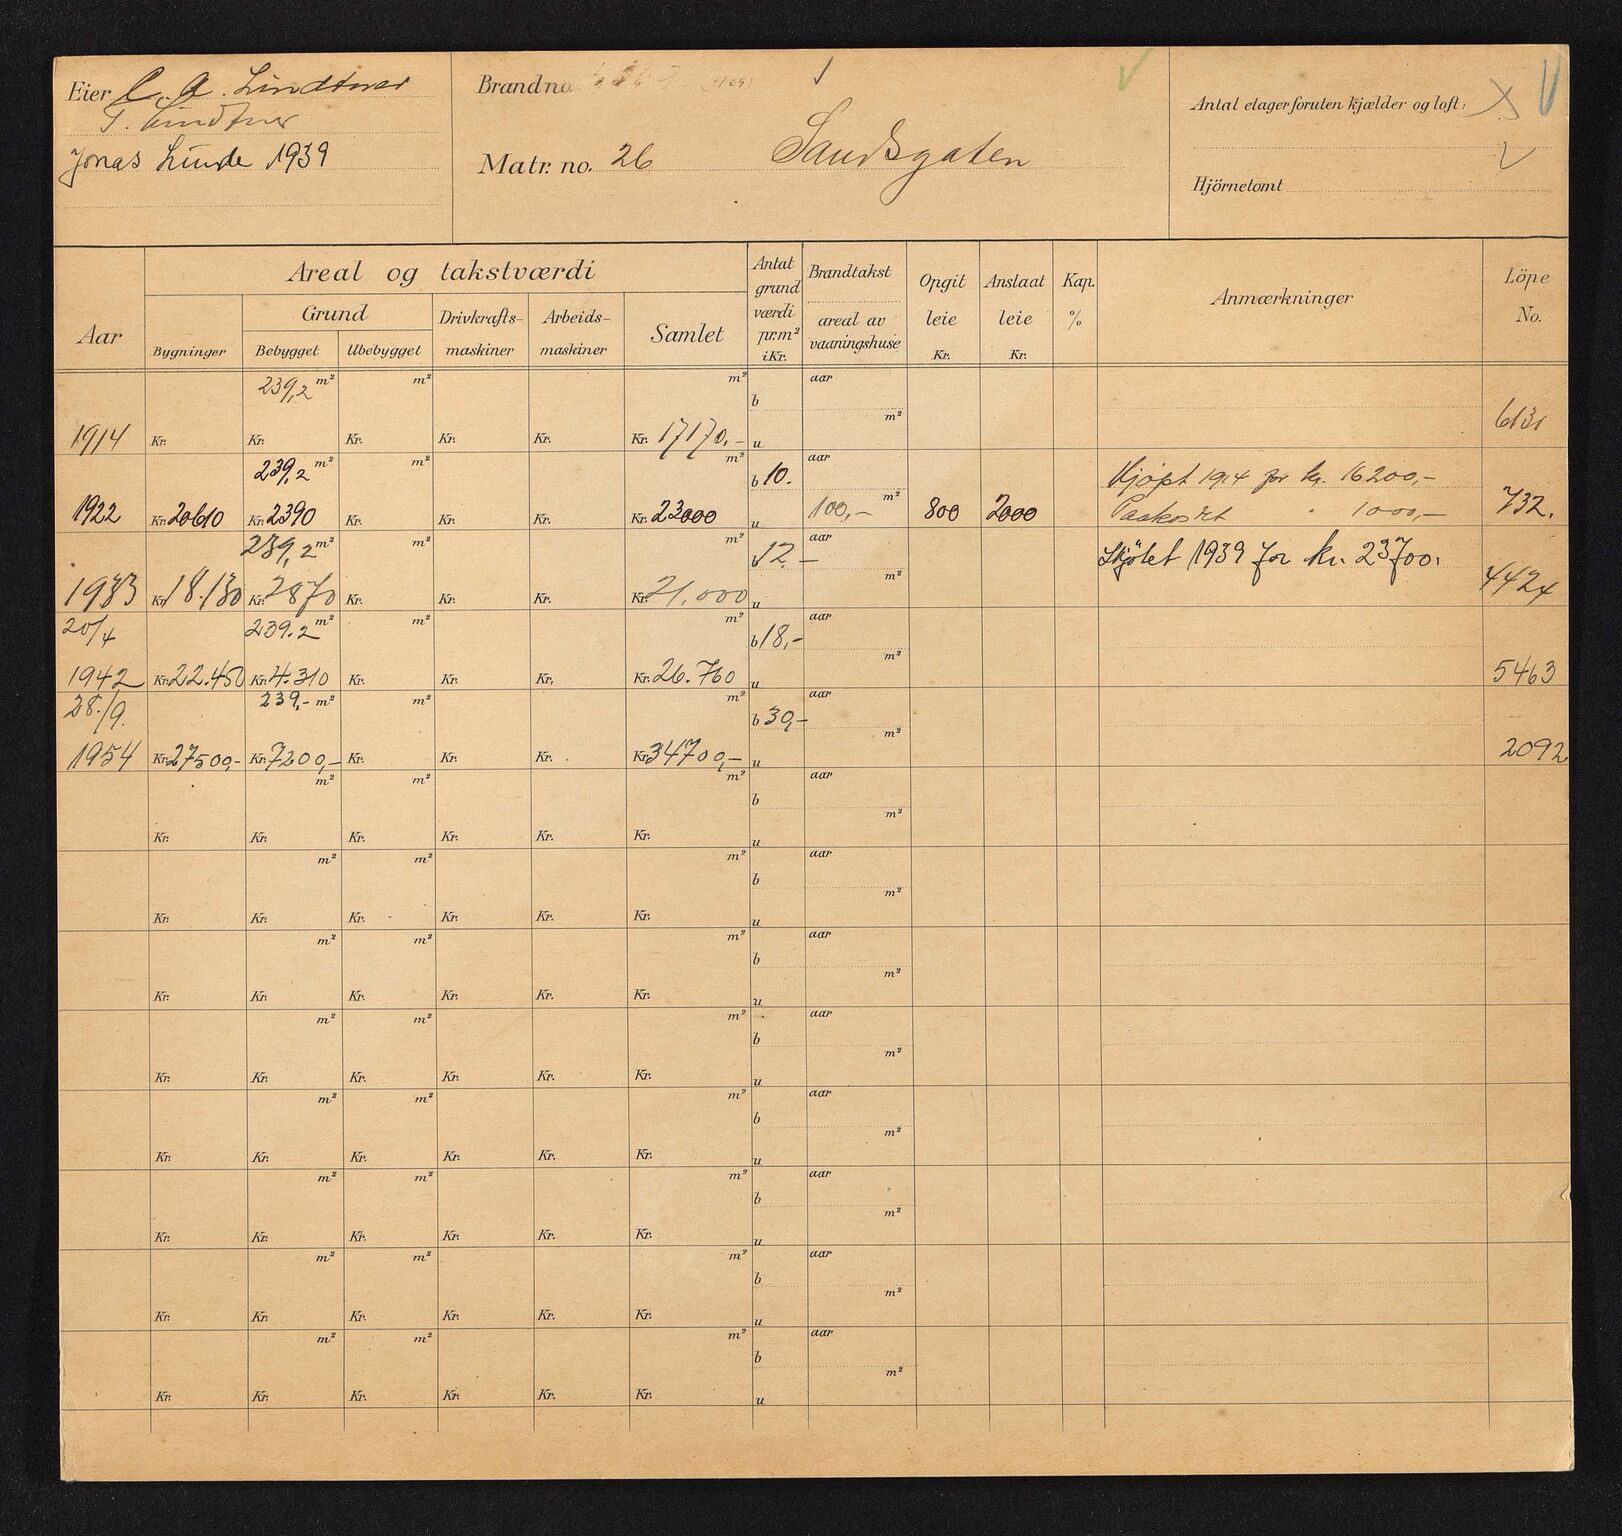 Eier C. A. Lindtner
T. Lindtner
Jonas Lunde 1939
Brandno.
Matr. no. 26 Sandsgaten
Antal etager foruten kjælder og loft:
Hjörnetomt
Aar
Areal og takstværdi
Bygninger
Grund
Bebygget Ubebygget
Drivkrafts-
maskiner
Arbeids-
maskiner
Samlet
Antat
grund
værdi
pr.m²
i Kr.
Brandtakst
areal av
vaaningshuse
Opgit
leie
Kr.
Anslaat
leie
Kr.
Kap.
%
Anmærkninger
Löpe
No.
239,2 m² m² m² aar
b m²
1914 Kr. Kr. Kr. Kr. Kr. Kr. 17170,- u 6131
239,2 m² m² m² b 10. aar Kjöpt 1914 for kr. 16200,-
1922 Kr. 20610 Kr. 2390 Kr. Kr. Kr. Kr. 23000 u 100,- m² 800 2000 Paakostet " 1000,- 732.
239,2 m² m² m² b 12.- aar Skjötet 1939 for kr. 23700.
m²
1933 Kr. 18.130 Kr. 2870 Kr. Kr. Kr. Kr. 21.000 u 4424
20/4 239.2 m² m² m² b 18,- aar
m²
1942 Kr. 22.450 Kr. 4.310 Kr. Kr. Kr, Kr. 26.760 u 5463
28./9. 239,- m² m² m² b 30,- aar
m²
1954 Kr. 27500,- Kr. 7200,- Kr. Kr. Kr. Kr. 34700,- u 2092
m² m² m² aar
b m²
Kr. Kr. Kr. Kr. Kr. Kr. u
m² m² m² aar
b m²
Kr. Kr. Kr. Kr. Kr. Kr. u
m² m² m² aar
b m²
Kr. Kr. Kr. Kr. Kr. Kr. u
m² m² m² aar
b m²
Kr. Kr. Kr. Kr. Kr. Kr. u
m² m² m² aar
b m²
Kr. Kr. Kr. Kr. Kr. Kr. u
m² m² m² aar
b m²
Kr. Kr. Kr. Kr. Kr. Kr. u
m² m² m² aar
b m²
Kr. Kr. Kr. Kr. Kr. Kr. u
m² m² m² aar
b m²
Kr. Kr. Kr. Kr. Kr. Kr. u